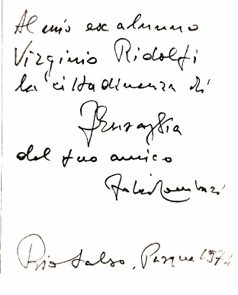 Al mio ex alunno
Virginio Ridolfi
la cittadinanza di
Brusaglia
dal suo amico
Fabio Tombari
Rio Salso, Pasqua 1974